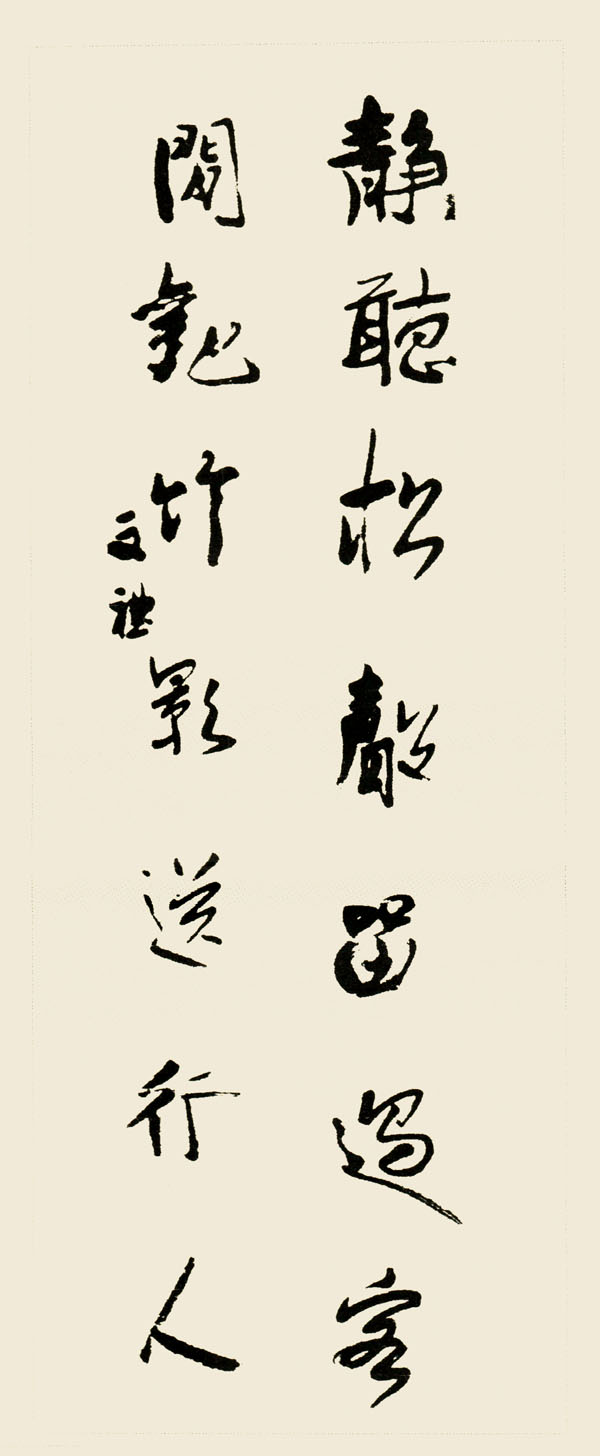 靜聽松聲留過客
閒觀竹影送行人
文禮